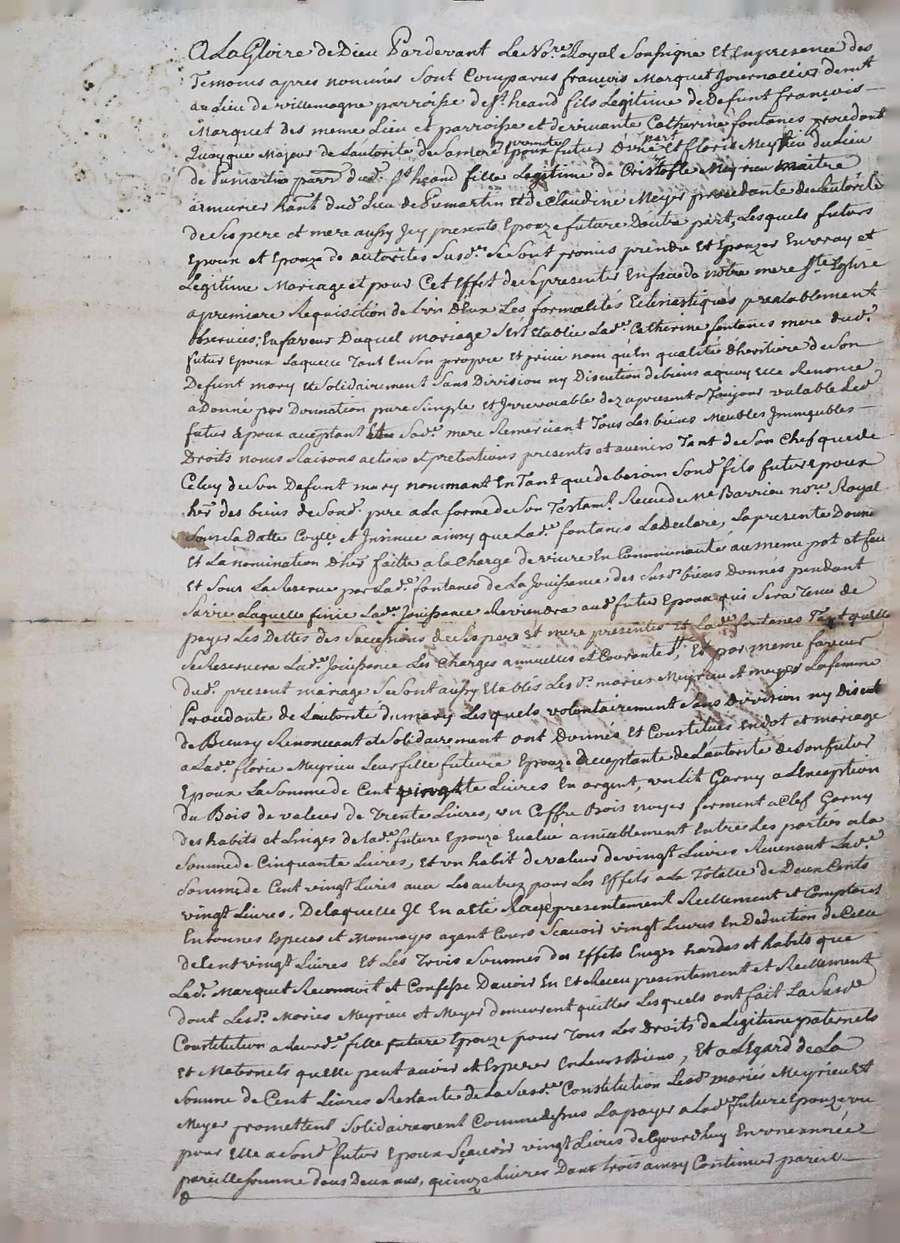 A La Gloire de Dieu Pardevant Le No.re Royal Sousigne Et En presence des
Temoins apres nommés Sont Comparus françois Marquet Journallier demt
au Lieu de villemagne parroisse de St. heand fils Legitime de Defunt françois
Marquet des meme Lieu et parroisse et de vivante Catherine fontanes procedant
Quoyque Majeur de Lautorite de Sa mere presente futur Epoux d'une part Et florie Meyrieu du Lieu
de fumartin parr. dud. St. heand fille Legitime de Cristofle Meyrieu Maitre
armurier hant dud. Lieu de fumartin Et de Claudine Meyer procedante de Lautorite
de Ses pere et mere aussy Icy presents Epouze future Dautre part, Lesquels futurs
Epoux et Epouze de autorites Susd.es Se Sont promis prendre Et Epouzer En vray et
Legitime Mariage et pour Cet Effet de Se presenter En face de notre mere Ste Eglise
a premiere Requisition de L'un D'Eux Les formalités Eclesiastiques prealablement
observees; En faveur Duquel mariage S'est Etablie Lad.e Catherine fontanes mere dud.
futur Epoux Laquelle Tant En Son propre et privé nom qu'En qualité d'heritiere de Son
Defunt mary et Solidairement Sans Division ny Discution de biens a quoy Elle Renonce
a Donné par Donnation pure Simple et Irrevocable dez a present a Toujour valable aud.
futur Epoux acceptant Sad.e mere Remerciant Tous Les biens Meubles Immeubles
Droits noms Raisons actions et pretentions presents et avenirs Tant de Son Chef que de
Celuy de Son Defunt mary nommant En Tant que de besoin Sond. fils futur Epoux
her. des biens de Sond. pere a la forme de Son Testamt. Receu de Me Barrieu no.re Royal
Sous Sa Datte et Insinué ainsy que Lad.e fontanes La declare, La presente Donnon
Et La nomination d'her. faitte a la Charge de vivre En Communauté au meme pot et feu
Et Sous La Reserve par Lad.e fontanes de La Jouissance des Susd. biens Donnés pendant
Sa vie Laquelle finie Lad.e Jouissance Reviendra aud. futur Epoux qui Sera Tenu de
payer Les Dettes des Successions de Ses pere et mere presentes Et Lad.e fontanes Tant qu'elle
Se Reservera Lad.e Jouissance Les Charges annuelles et Courantes; Et par meme faveur
dud. present mariage Se Sont aussy Etablis Les d. mariés Meyrieu et Meyer La femme
Procedante de Lautorite du mary Lesquels volontairement Sans Division ny Discut.
de Biens y Renonceant et Solidairement ont Donnés Et Constitués En dot et mariage
a Lad.e florie Meyrieu Leur fille future Epouze acceptante de Lautorite de Son futur
Epoux La Somme de Cent Livres En argent, un Lit Garny a L'Exception
du Bois de valeur de Trente Livres, un Coffre Bois noyer fermant a Clef Garny
des habits et Linges de Lad.e future Epouze Evalué amiablement Entre Les parties a la
Somme de Cinquante Livres, Et un habit de valeur de vingt Livres Revenant Lad.e
Somme de Cent vingt Livres avec Les autres pour Les Effets a La Totalle de Deux Cents
vingt Livres. De laquelle Il En a Eté presentement Reellement et Comptant
En bonnes Especes et Monnoyes ayant Cours Scavoir vingt Livres En Deduction de Celle
de Cent vingt Livres Et Les Trois Sommes des Effets Linges hardes et habits que
Led. Marquet Reconnoit et Confesse D'avoir Eu Et Receu presentement et Reellement
dont Lesd. Mariés Meyrieu et Meyer demeurent quittes Lesquels ont fait La Susd.e
Constitution a Leurd.e fille future Epouze pour Tous Les Droits de Legitime paternels
Et Maternels qu'elle peut avoir et Esperer En Leurs Biens, Et a L'Egard de La
Somme de Cent Livres Restante de La Susd.e Constitution Lesd. mariés Meyrieu Et
Meyer promettent Solidairement Comme dessus La payer a Lad.e future Epouze ou
pour Elle a Sond. futur Epoux Scavoir vingt Livres de Cejourd'huy En une année
pareille Somme dans Deux ans, quinze Livres Dans trois ainsy Continuer pareil